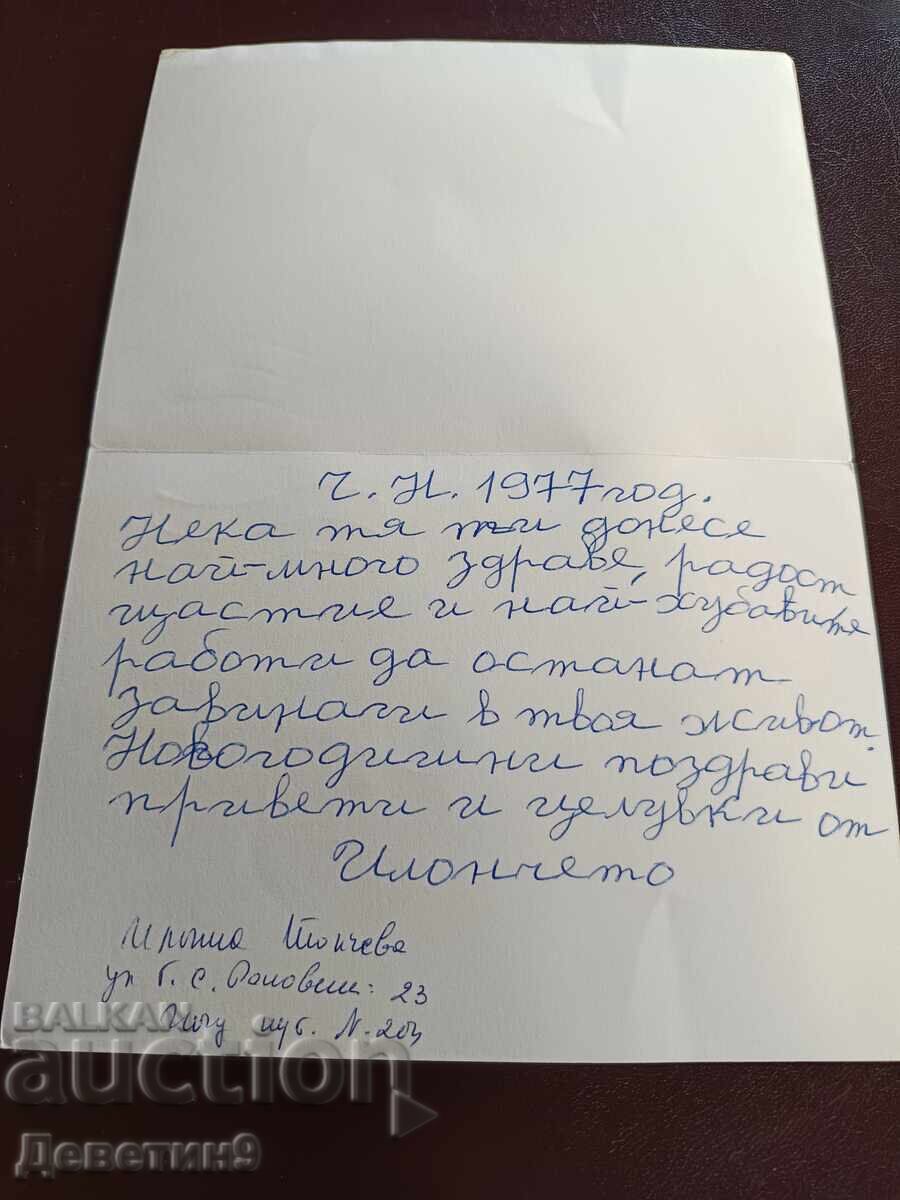 Ч. Н. 1977 год.
Нека тя ти донесе
най-много здраве, радост
щастие и най-хубавите
работи да останат
завинаги в твоя живот.
Новогодишни поздрави
привети и целувки от
Илончето
Илона
ул Г. С. 23
N. 203
BALKAN
auction
Деветин9